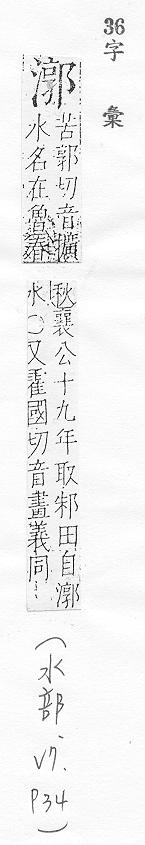 36
字彙
漷
苦郭切音擴
水名在魯春
秋襄公十九年取邾田自漷
水〇又霍國切音畫義同
(水部、V7. P34)